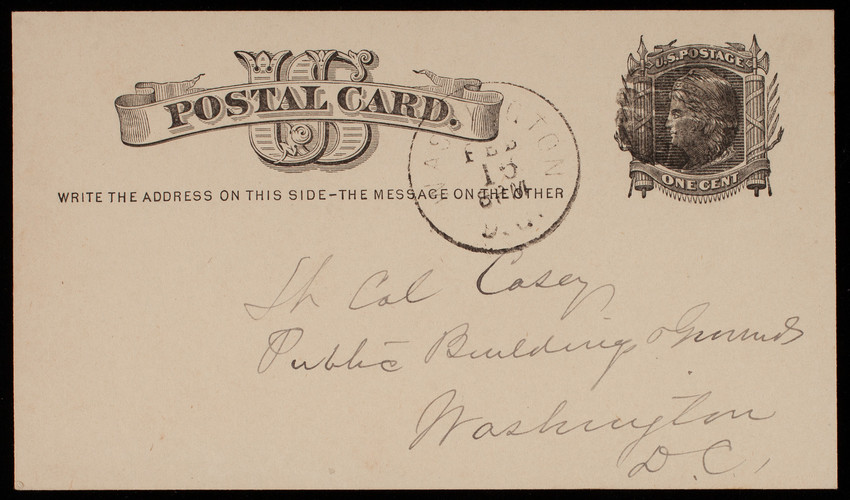 US
POSTAL CARD.
U.S. POSTAGE
ONE CENT
WRITE THE ADDRESS ON THIS SIDE-THE MESSAGE ON THE OTHER
WASHINGTON
FEB
D.C.
Col Casey
Public Building & Grounds
Washington
D.C.